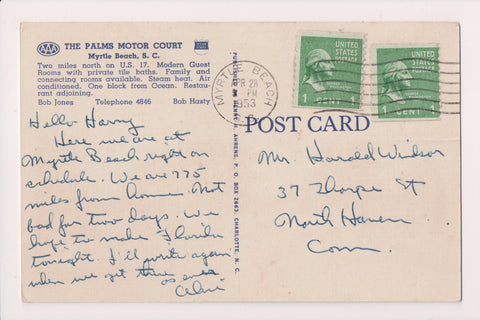 AAA THE PALMS MOTOR COURT
Myrtle Beach, S. C.
Two miles north on U.S. 17. Modern Guest
Rooms with private tile baths. Family and
connecting rooms available. Steam heat. Air
conditioned. One block from Ocean. Restau-
rant adjoining.
Bob Jones Telephone 4846 Bob Hasty
Hello Harry
Here we are at
Myrtle Beach right on
schedule. We are 775
miles from home. Not
bad for two days. We
hope to make Florida
tonight. I'll write again
when we get there
as ever
PUBLISHED BY HENRY H. AHRENS, P. O. BOX 2683, CHARLOTTE, N. C.
MYRTLE BEACH
APR 28
PM
1953
UNITED
STATES
POSTAGE
1 CENT 1
UNITED
STATES
POSTAGE
1 CENT 1
POST CARD
Mr. Harold Windsor
37 Thorpe St
North Haven
Conn.